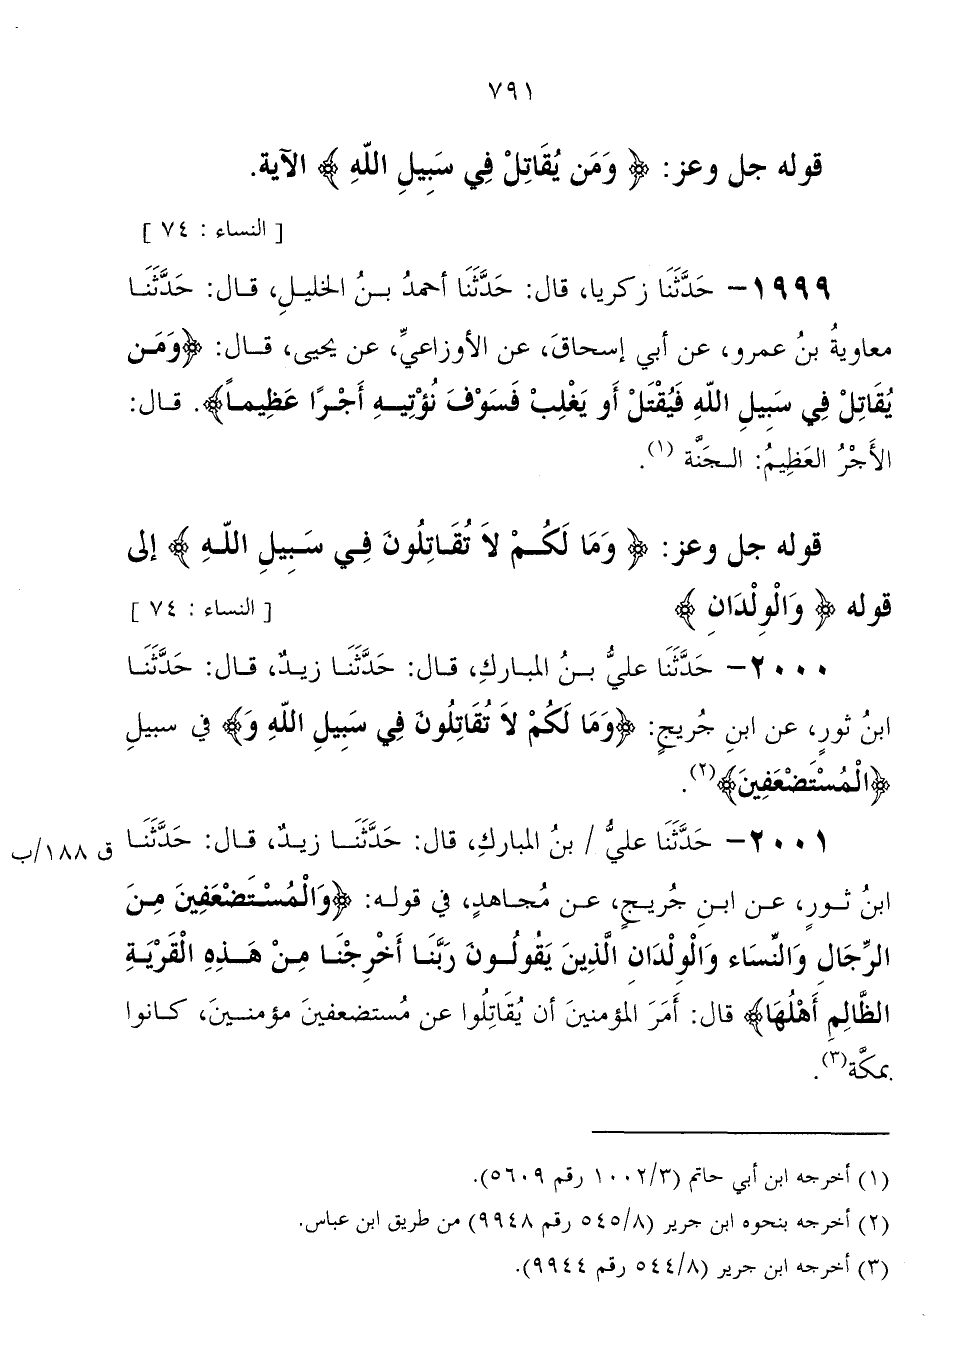 ٧٩١
قوله جل وعز: ﴿ وَمَن يُقَاتِلْ فِي سَبِيلِ اللّهِ ﴾ الآية.
[ النساء : ٧٤ ]
١٩٩٩- حَدَّثَنَا زكريا، قال: حَدَّثَنَا أحمدُ بـنُ الخليلِ، قـال: حَدَّثَنَـا
معاويةُ بنُ عمرو، عن أبي إسحاقَ، عن الأوزاعيِّ، عن يحيى، قـال: ﴿وَمَـن
يُقَاتِلْ فِي سَبِيلِ اللّهِ فَيُقْتَلْ أَو يَغْلِبْ فَسَوْفَ نُؤْتِيـهِ أَجْـرًا عَظِيمـاً﴾. قـال:
الأَجْرُ العَظِيمُ: الـجَنَّة (١).
قوله جل وعز: ﴿ وَمَا لَكُـمْ لاَ تُقَـاتِلُونَ فِـي سَـبِيلِ اللّـهِ ﴾ إلى
قوله ﴿ وَالْوِلْدَانِ ﴾ [ النساء : ٧٤ ]
٢٠٠٠- حَدَّثَنَا عليُّ بـنُ المبـاركِ، قـال: حَدَّثَنَـا زيـدٌ، قـال: حَدَّثَنَـا
ابنُ ثورٍ، عن ابنِ جُريجٍ: ﴿وَمَا لَكُمْ لاَ تُقَاتِلُونَ فِي سَبِيلِ اللّهِ وَ﴾ في سبيلِ
﴿الْمُسْتَضْعَفِينَ﴾(٢).
٢٠٠١- حَدَّثَنَا عليُّ / بنُ المباركِ، قال: حَدَّثَنَـا زيـدٌ، قـال: حَدَّثَنَـا ق ١٨٨/ب
ابنُ ثـورٍ، عـن ابـنِ جُريـجٍ، عـن مُجـاهدٍ، في قولـه: ﴿وَالْمُسْـتَضْعَفِينَ مِـنَ
الرِّجَالِ وَالنِّسَاء وَالْوِلْدَانِ الَّذِينَ يَقُولُـونَ رَبَّنَـا أَخْرِجْنَـا مِـنْ هَـذِهِ الْقَرْيَـةِ
الظَّالِمِ أَهْلُهَا﴾ قال: أَمَرَ المؤمنينَ أن يُقَاتِلُوا عن مُستضعفينَ مؤمنـينَ، كـانوا
بمكَّة(٣).
(١) أخرجه ابن أبي حاتم (١٠٠٢/٣ رقم ٥٦٠٩).
(٢) أخرجه بنحوه ابن جرير (٥٤٥/٨ رقم ٩٩٤٨) من طريق ابن عباس.
(٣) أخرجه ابن جرير (٥٤٤/٨ رقم ٩٩٤٤).